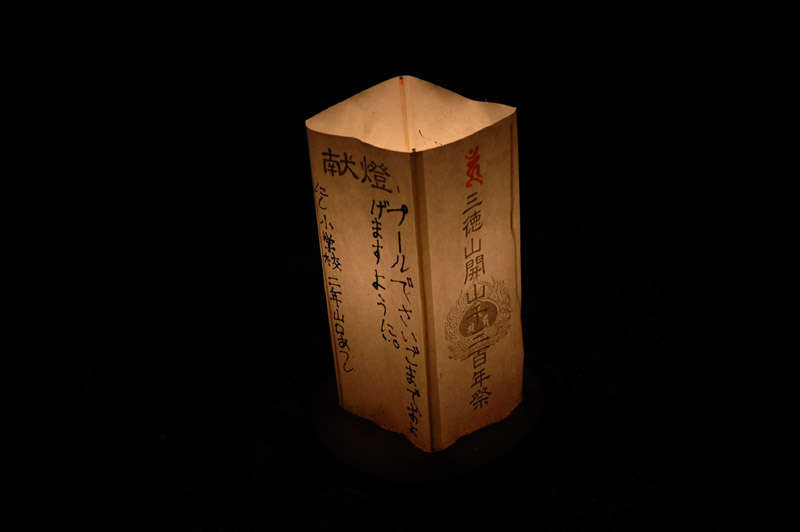 献燈
プールでさいごまでおよ
げますように。
にし小学校 二年山口あつし
三徳山開山千三百年祭